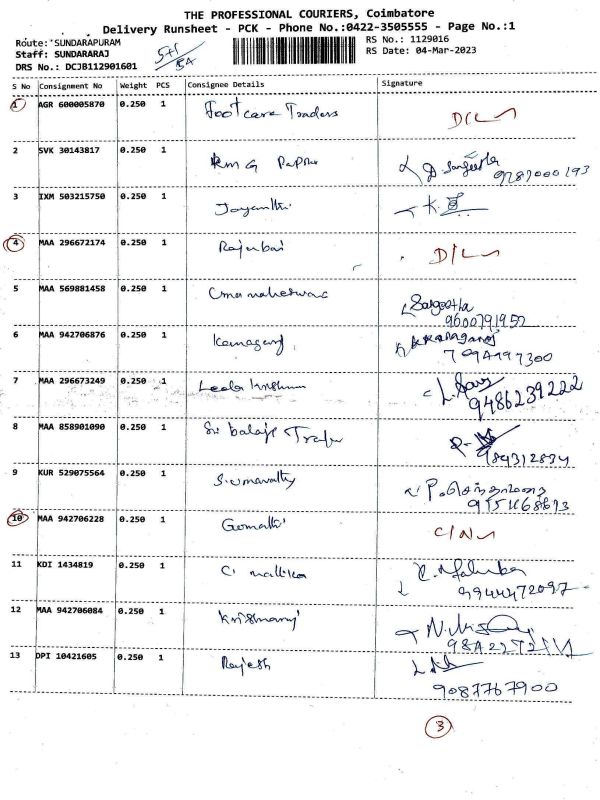 THE PROFESSIONAL COURIERS, Coimbatore
Delivery Runsheet - PCK - Phone No.:0422-3505555 - Page No.:1
Route: SUNDARAPURAM
RS No.: 1129016
Staff: SUNDARARAJ
RS Date: 04-Mar-2023
DRS No.: DCJB112901601
S No Consignment No Weight PCS Consignee Details Signature
1 AGR 600005870 0.250 1 Foot care Traders D/L
2 SVK 30143817 0.250 1
3 IXM 503215750 0.250 1 Jayanthi
4 MAA 296672174 0.250 1 Rajubai D/L
5 MAA 569881458 0.250 1 Umamaheswari Sangeetha
9600791952
6 MAA 942706876 0.250 1 Kanagaraj
7 MAA 296673249 0.250 1 Leela Krishnan
9486239222
8 MAA 858901090 0.250 1 Sri balaji
984312834
9 KUR 529075564 0.250 1 Sumavathy
9751168673
10 MAA 942706228 0.250 1 Gomathi C/N
11 KDI 1434819 0.250 1 C. mallika
9944472097
12 MAA 942706084 0.250 1 Krishnaraj
13 DPI 10421605 0.250 1 Rajesh
9087767900
3